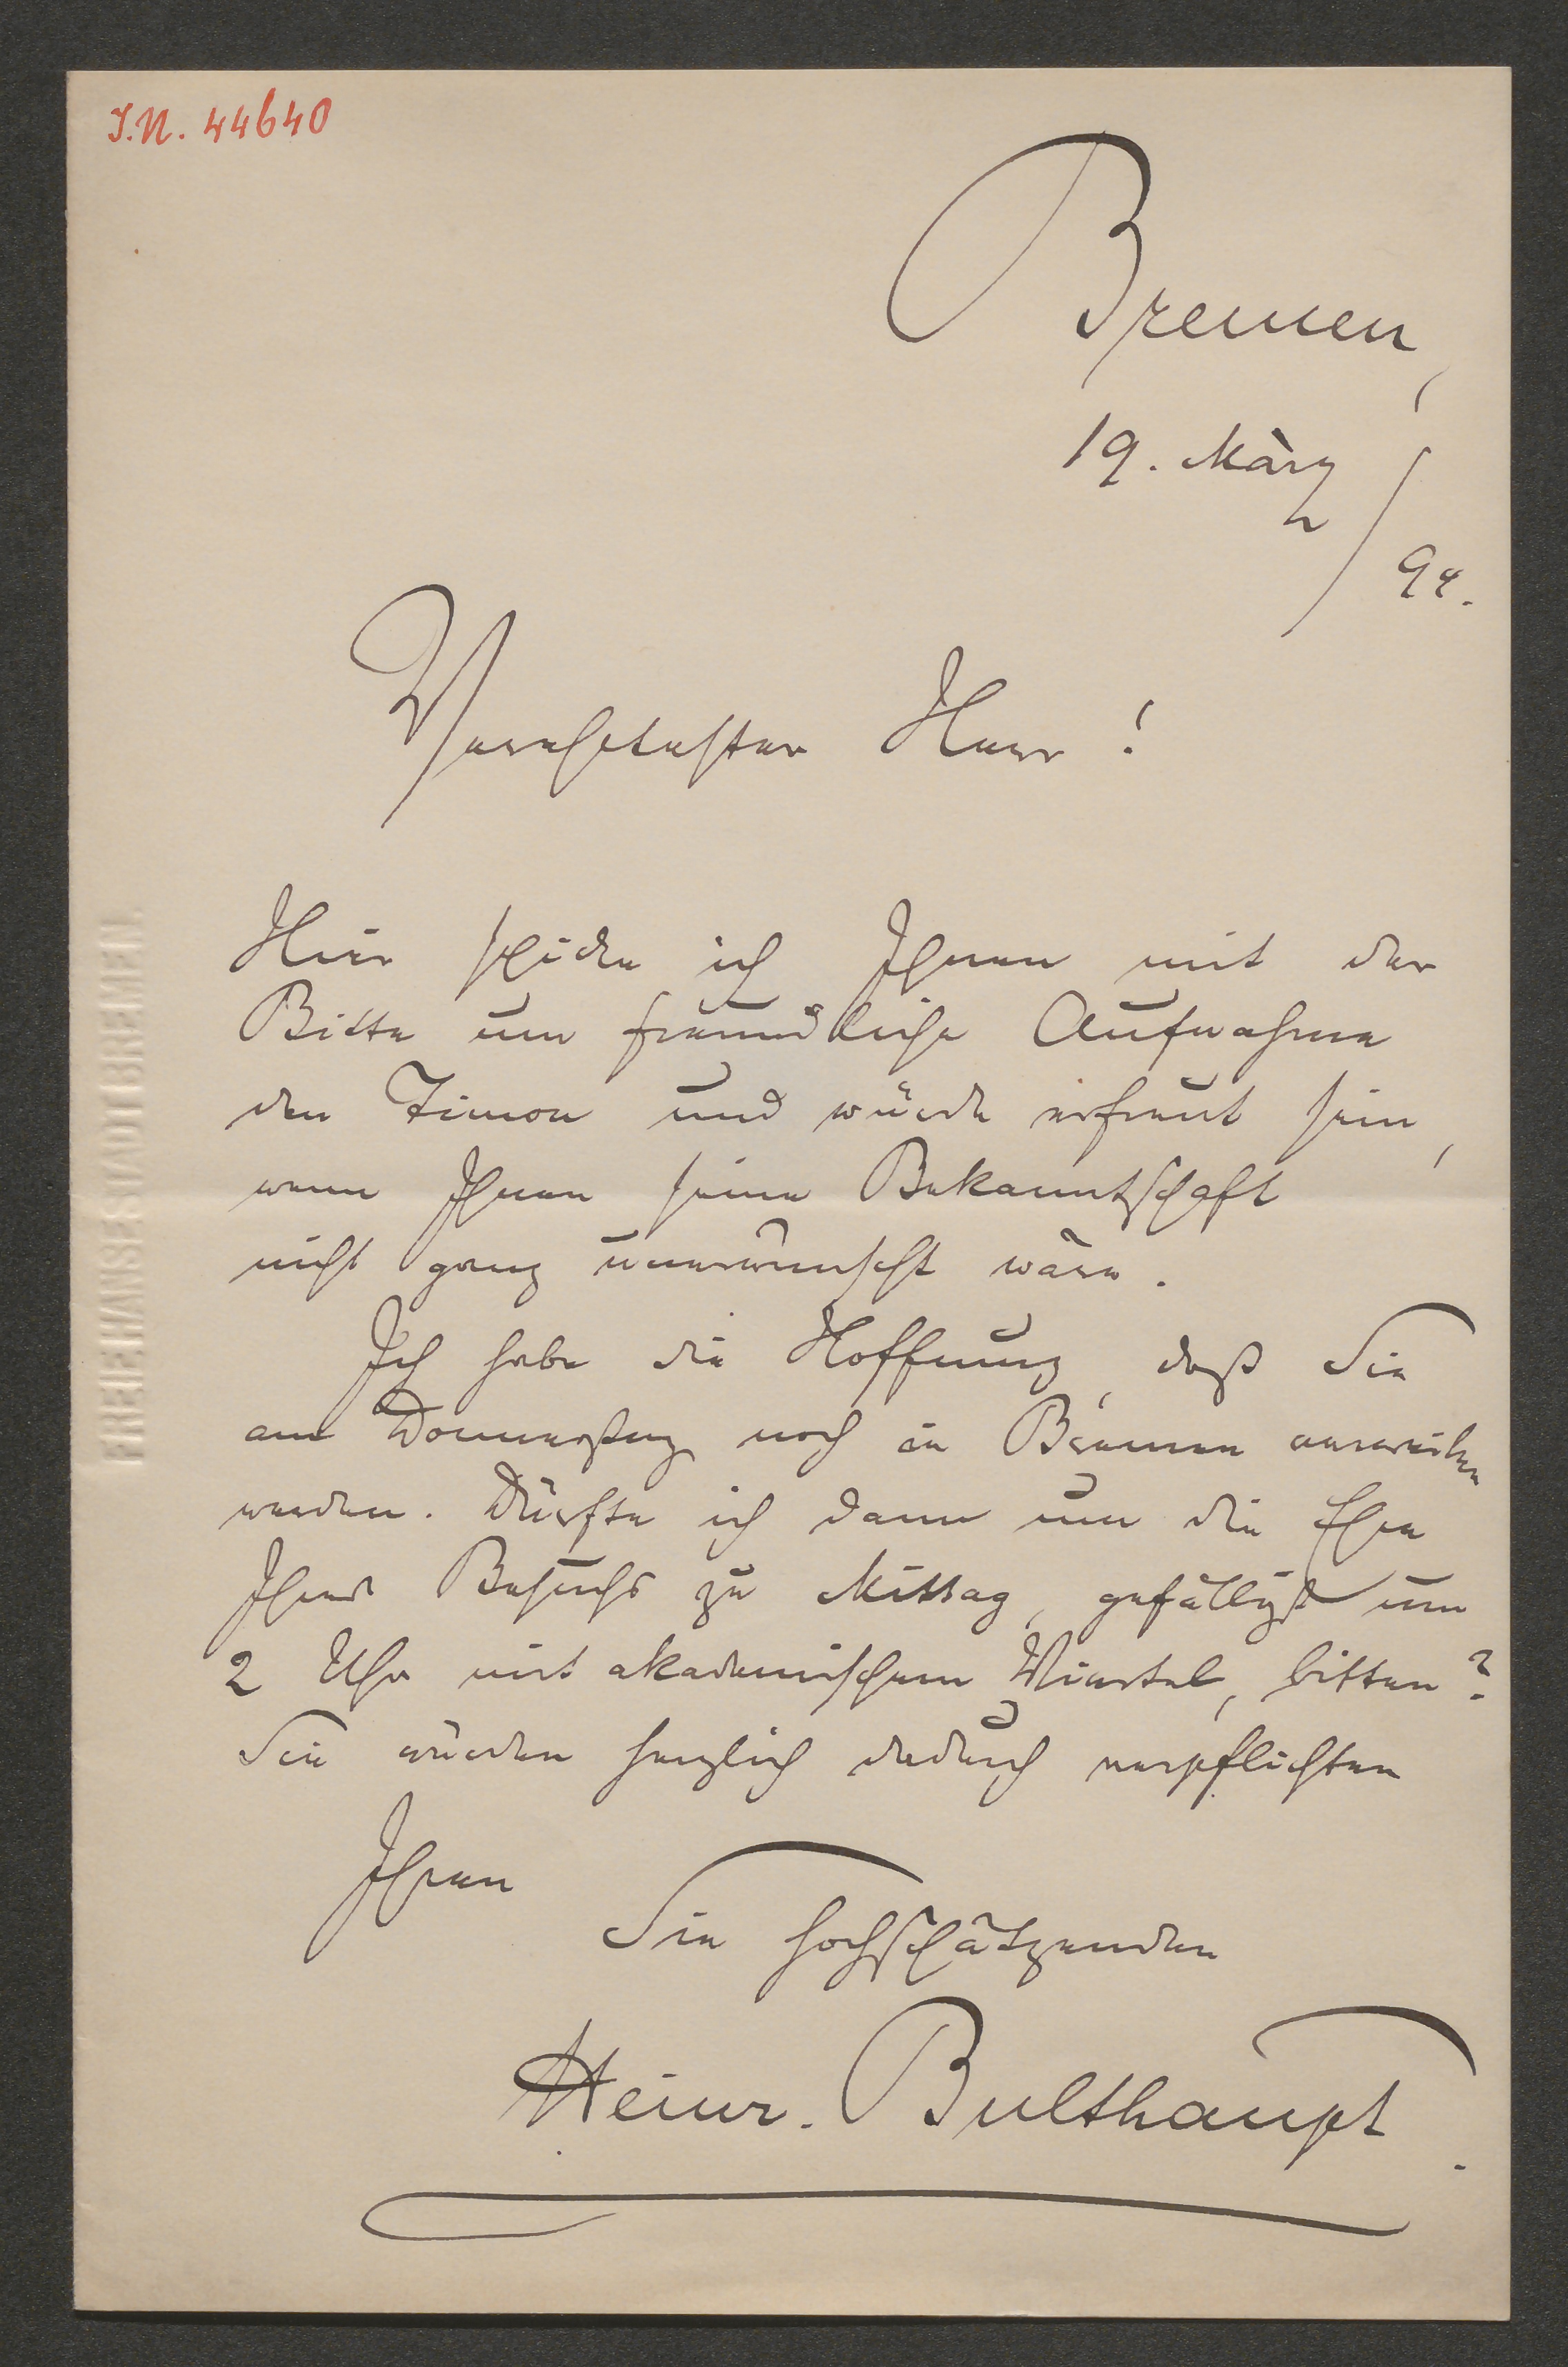 I.N. 44640
Bremen,
19. März/94.
Verehrtester Herr!
Hier schicke ich Ihnen mit der
Bitte um freundliche Aufnahme
den Timon und würde erfreut sein,
wenn Ihnen seine Bekanntschaft
nicht ganz unerwünscht wäre.
Ich habe die Hoffnung, daß Sie
am Donnerstag noch in Bremen verweilen
werden. Dürfte ich dann um die Ehre
Ihres Besuchs zu Mittag, gefälligst um
2 Uhr mit akademischem Viertel, bitten?
Sie würden herzlich dadurch verpflichten
Ihren
Sie hochschätzenden
Heinr. Bulthaupt.
FREIE HANSESTADT BREMEN.